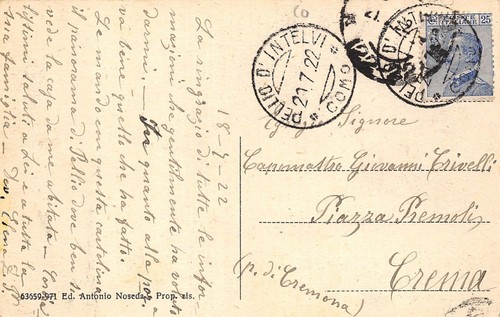 18-7-22
La ringrazio di tutte le infor-
mazioni che gentilmente ha voluto
darmi. - In quanto alla posi
va bene quello che ha fatto.
Le mando con questa cartolina
il panorama di Pellio dove ben si
vede la casa da me abitata -
saluti a Lei e a tutta la
Sua famiglia - Dev.
63659-971 Ed. Antonio Noseda - Prop. ris.
PELLIO D'INTELVI
20.7.22
* COMO *
PELLIO D'IN
25
Egreg. Signore
Capomastro Giovanni Crivelli
Piazza Premoli
Crema
(p. di Cremona)